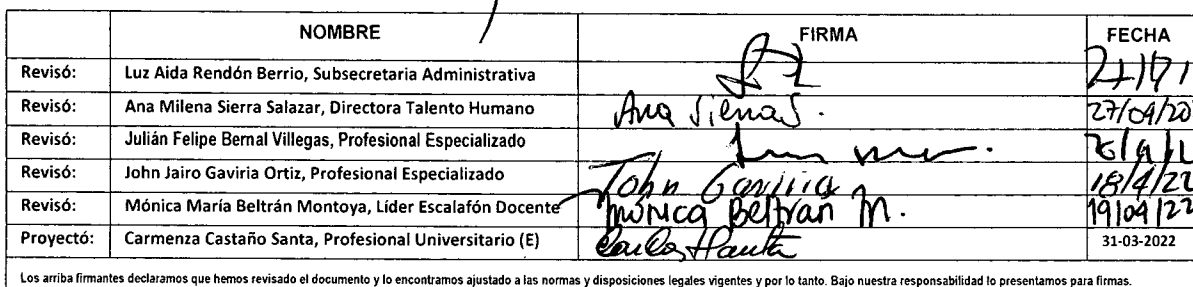 NOMBRE FIRMA FECHA
Revisó: Luz Aida Rendón Berrio, Subsecretaria Administrativa
Revisó: Ana Milena Sierra Salazar, Directora Talento Humano Ana Sierra S. 27/04/20
Revisó: Julián Felipe Bernal Villegas, Profesional Especializado
Revisó: John Jairo Gaviria Ortiz, Profesional Especializado John Gaviria 18/4/22
Revisó: Mónica María Beltrán Montoya, Líder Escalafón Docente Mónica Beltrán M. 19/04/22
Proyectó: Carmenza Castaño Santa, Profesional Universitario (E) 31-03-2022
Los arriba firmantes declaramos que hemos revisado el documento y lo encontramos ajustado a las normas y disposiciones legales vigentes y por lo tanto. Bajo nuestra responsabilidad lo presentamos para firmas.